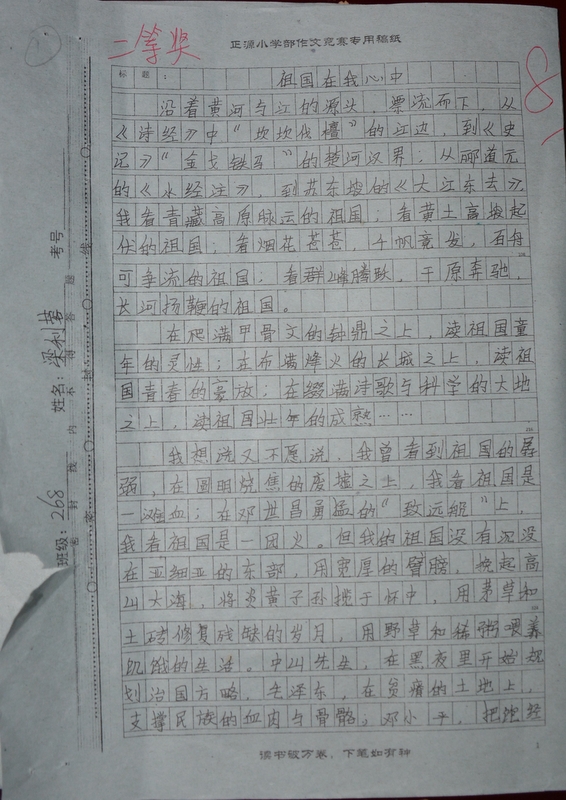 二等奖
正源小学部作文竞赛专用稿纸
标 题:
祖国在我心中
沿着黄河与江的源头,漂流而下,从
《诗经》中“坎坎伐檀”的江边,到《史
记》“金戈铁马”的楚河汉界;从郦道元
的《水经注》,到苏东坡的《大江东去》
我看青藏高原脉云的祖国;看黄土高坡起
伏的祖国;看烟花苍苍,千帆竞发,百舟
可争流的祖国;看群峰腾跃,千原奔驰,
长河扬鞭的祖国。
在爬满甲骨文的钟鼎之上,读祖国童
年的灵性;在布满烽火的长城之上,读祖
国青春的豪放;在缀满诗歌与科学的大地
之上,读祖国壮年的成熟……
我想说又不愿说,我曾看到祖国的孱
弱,在圆明烧焦的废墟之上,我看祖国是
一滩血;在邓世昌勇猛的“致远舰”上,
我看祖国是一团火。但我的祖国没有沉没
在亚细亚的东部,用宽厚的臂膀,挽起高
山大海,将炎黄子孙揽于怀中,用茅草和
土砖修复残缺的岁月,用野草和稀粥喂养
饥饿的生活。中山先生,在黑夜里开始规
划治国方略,毛泽东,在贫瘠的土地上,
支撑民族的血肉与骨骼;邓小平,把饱经
读书破万卷,下笔如有神
1
考号
姓名: 梁利芳
班级: 268
密 封 线 内 不 得 答 题